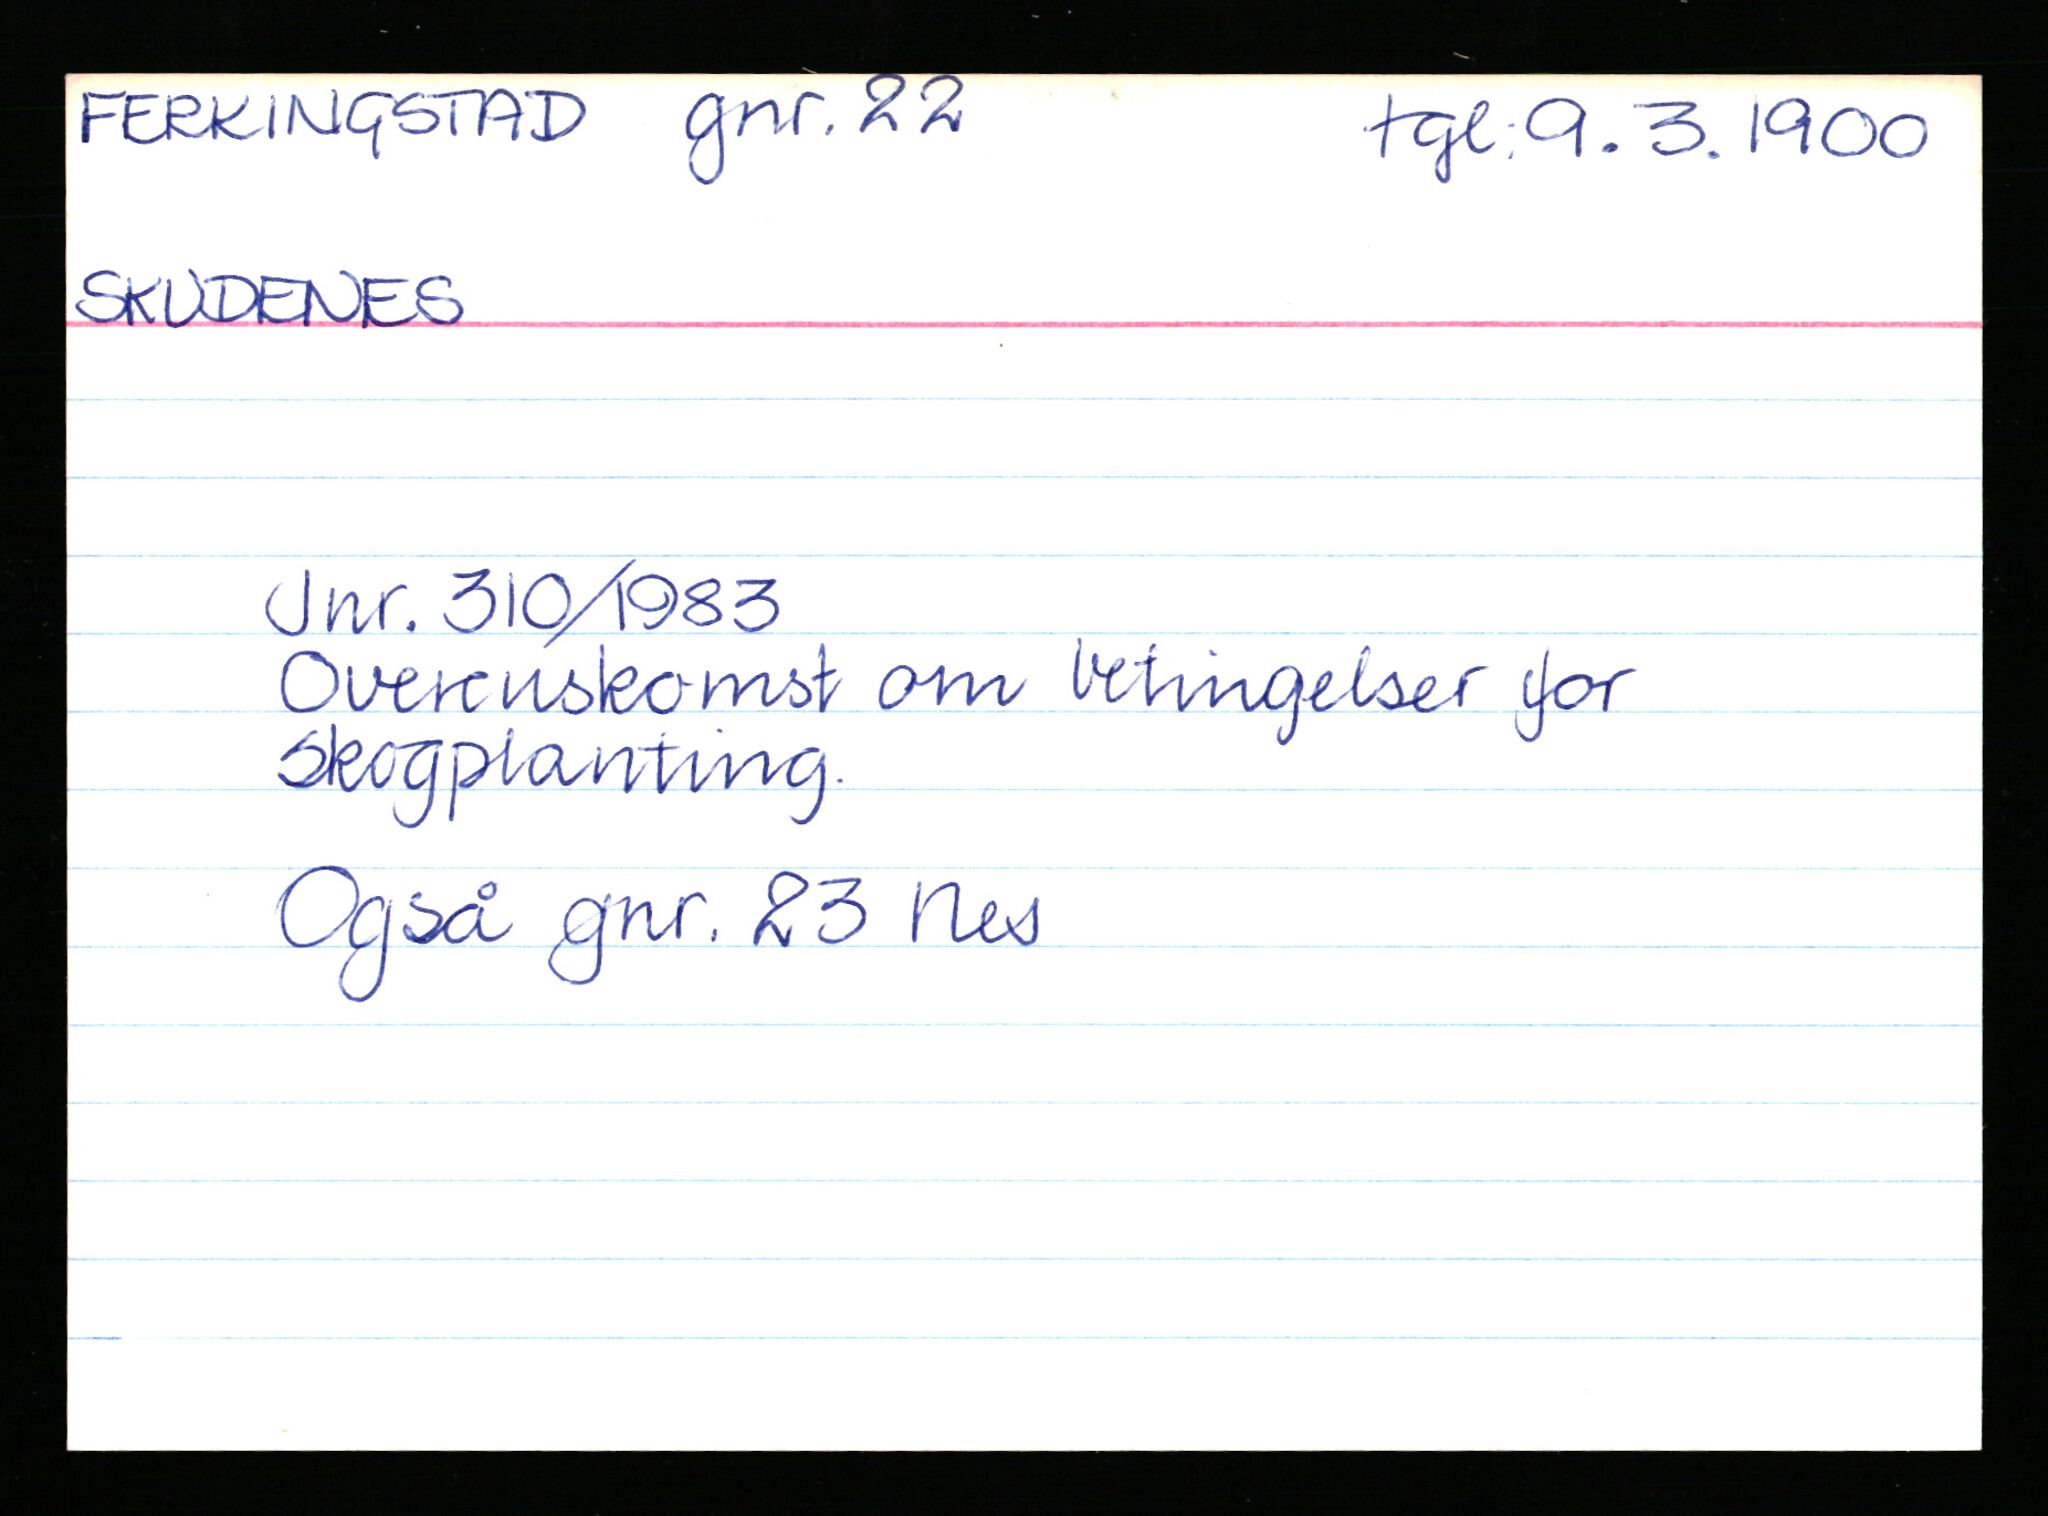 FERKINGSTAD gnr. 22 tgl: 9.3.1900
SKUDENES
Jnr. 310/1983
Overenskomst om betingelser for
skogplanting.
Også gnr. 23 Nes